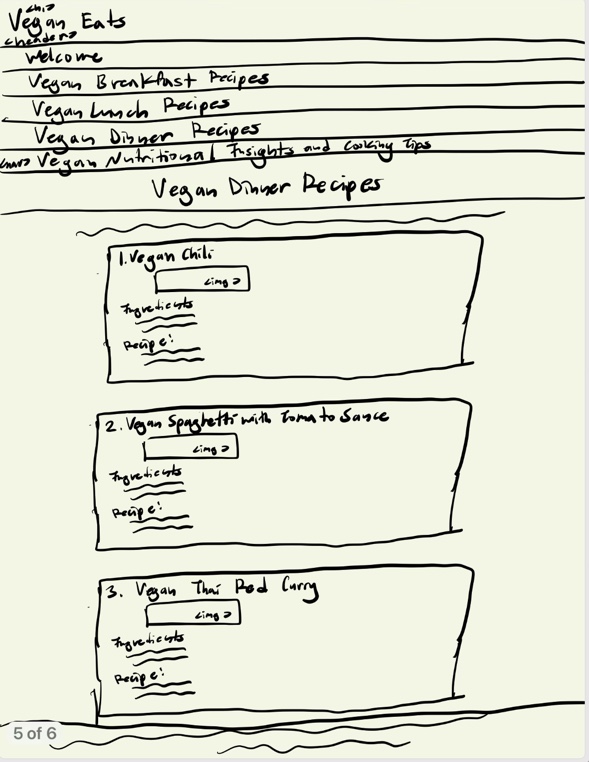 <h1>
Vegan Eats
<header>
Welcome
Vegan Breakfast Recipes
Vegan Lunch Recipes
Vegan Dinner Recipes
Vegan Nutritional Insights and Cooking Tips
Vegan Dinner Recipes
1. Vegan Chili
<img>
Ingredients
Recipe:
2. Vegan Spaghetti with Tomato Sauce
<img>
Ingredients
Recipe:
3. Vegan Thai Red Curry
<img>
Ingredients
Recipe:
5 of 6